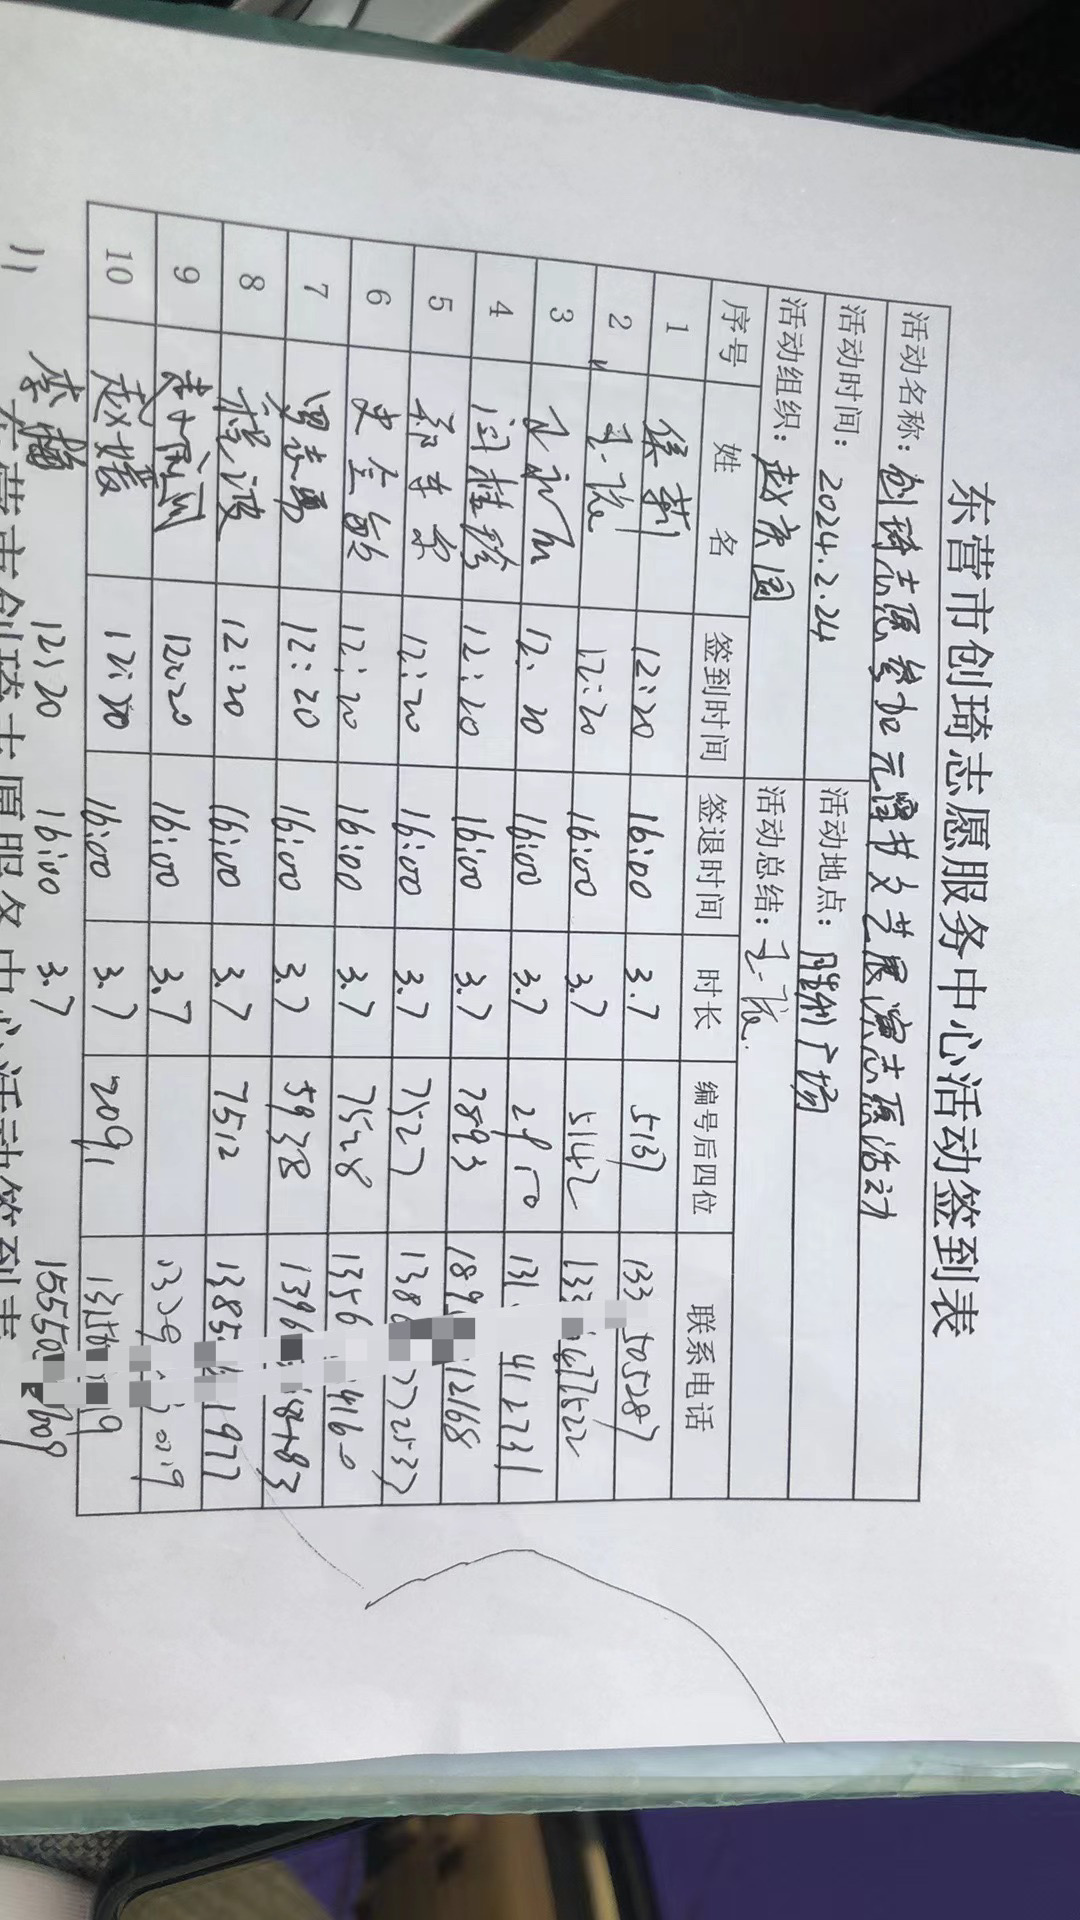 东营市创琦志愿服务中心活动签到表
活动名称：创琦志愿参加元宵节文艺展演志愿活动
活动时间：2024.2.24 活动地点：胜利广场
活动组织：赵京圆 活动总结：
序号 姓 名 签到时间 签退时间 时长 编号后四位 联系电话
1 12:20 16:00 3.7 5137 133 505287
2 12:20 16:00 3.7 5142 133 677522
3 12:20 16:00 3.7 131 412731
4 闫桂珍 12:20 16:00 3.7 7893 189 12168
5 12:20 16:00 3.7 7527 138 772537
6 史全敏 12:20 16:00 3.7 7528 1356 9160
7 贾志勇 12:20 16:00 3.7 5938 1396 8483
8 程波 12:20 16:00 3.7 7512 1385 1977
9 12:20 16:00 3.7
10 赵媛 12:20 16:00 3.7 2091 1315 19
11 李 12:20 16:00 3.7 15550 609
东营市创琦志愿服务中心活动签到表